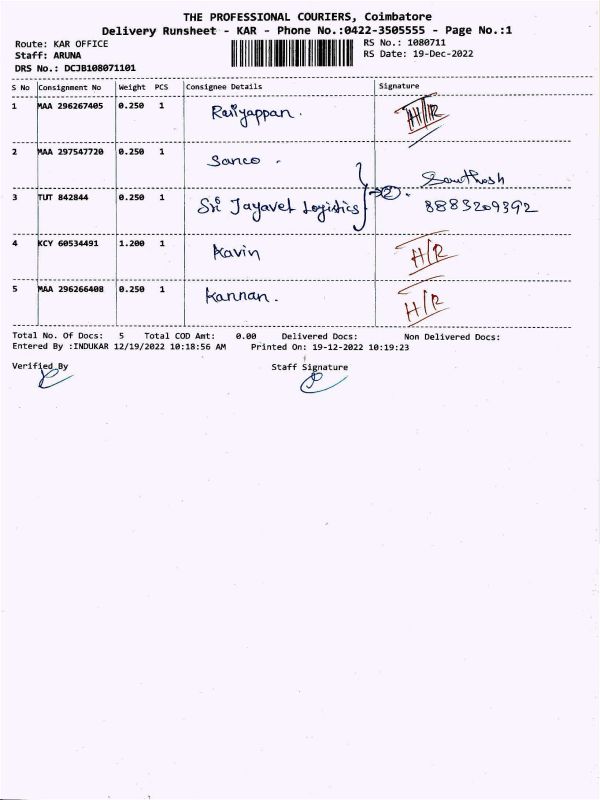 THE PROFESSIONAL COURIERS, Coimbatore
Delivery Runsheet - KAR - Phone No.:0422-3505555 - Page No.:1
Route: KAR OFFICE RS No.: 1080711
Staff: ARUNA RS Date: 19-Dec-2022
DRS No.: DCJB108071101
S No Consignment No Weight PCS Consignee Details Signature
1 MAA 296267405 0.250 1 H/R
2 MAA 297547720 0.250 1 Sanco . Santhosh
3 TUT 842844 0.250 1 Sri Jayavel Logistics } → 2 . 8883209392
4 KCY 60534491 1.200 1 Kavin H/R
5 MAA 296266408 0.250 1 Kannan. H/R
Total No. Of Docs: 5 Total COD Amt: 0.00 Delivered Docs: Non Delivered Docs:
Entered By :INDUKAR 12/19/2022 10:18:56 AM Printed On: 19-12-2022 10:19:23
Verified By Staff Signature